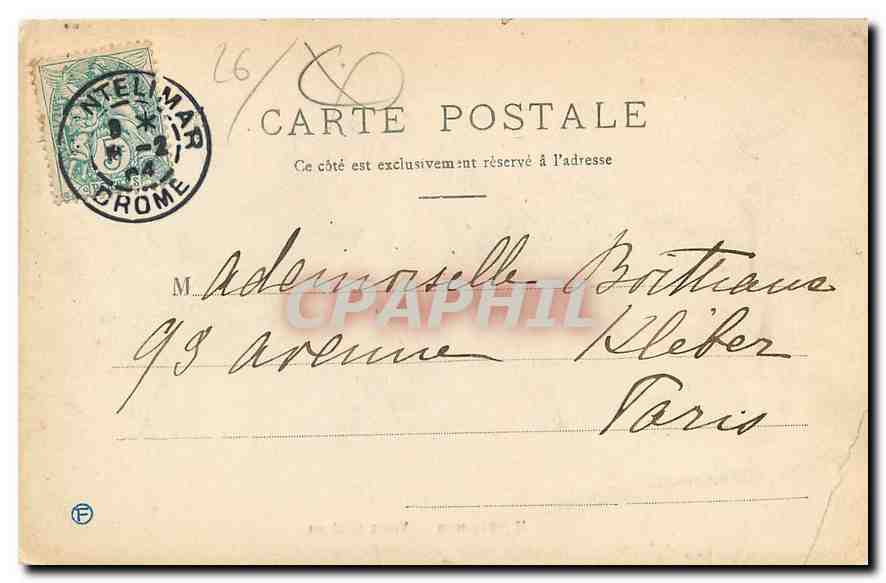 26/
NTELIMAR
-2
04
DROME
CARTE POSTALE
Ce côté est exclusivement réservé à l'adresse
Mademoiselle
CPAPHIL
93 avenue Kléber
Paris